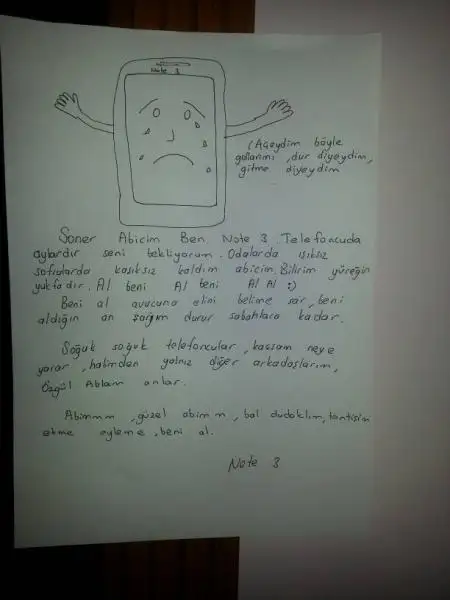 Note 3
(Açeydim böyle
gollarımı, dur diyeydim,
gitme diyeydim
Soner Abicim Ben Note 3. Telefoncuda
aylardır seni bekliyorum. Odalarda ışıksız
sofralarda kaşıksız kaldım abicim. Bilirim yüreğin
yukfadır. Al beni Al beni Al Al :)
Beni al avucuna elini belime sar, beni
aldığın an şarjım durur sabahlara kadar.
Soğuk soğuk telefoncular, kaçsam neye
yarar, halimden yalnız diğer arkadaşlarım,
Özgül Ablam anlar.
Abimmm, güzel abimm, bal dudaklım, tantisim
etme eyleme, beni al.
Note 3